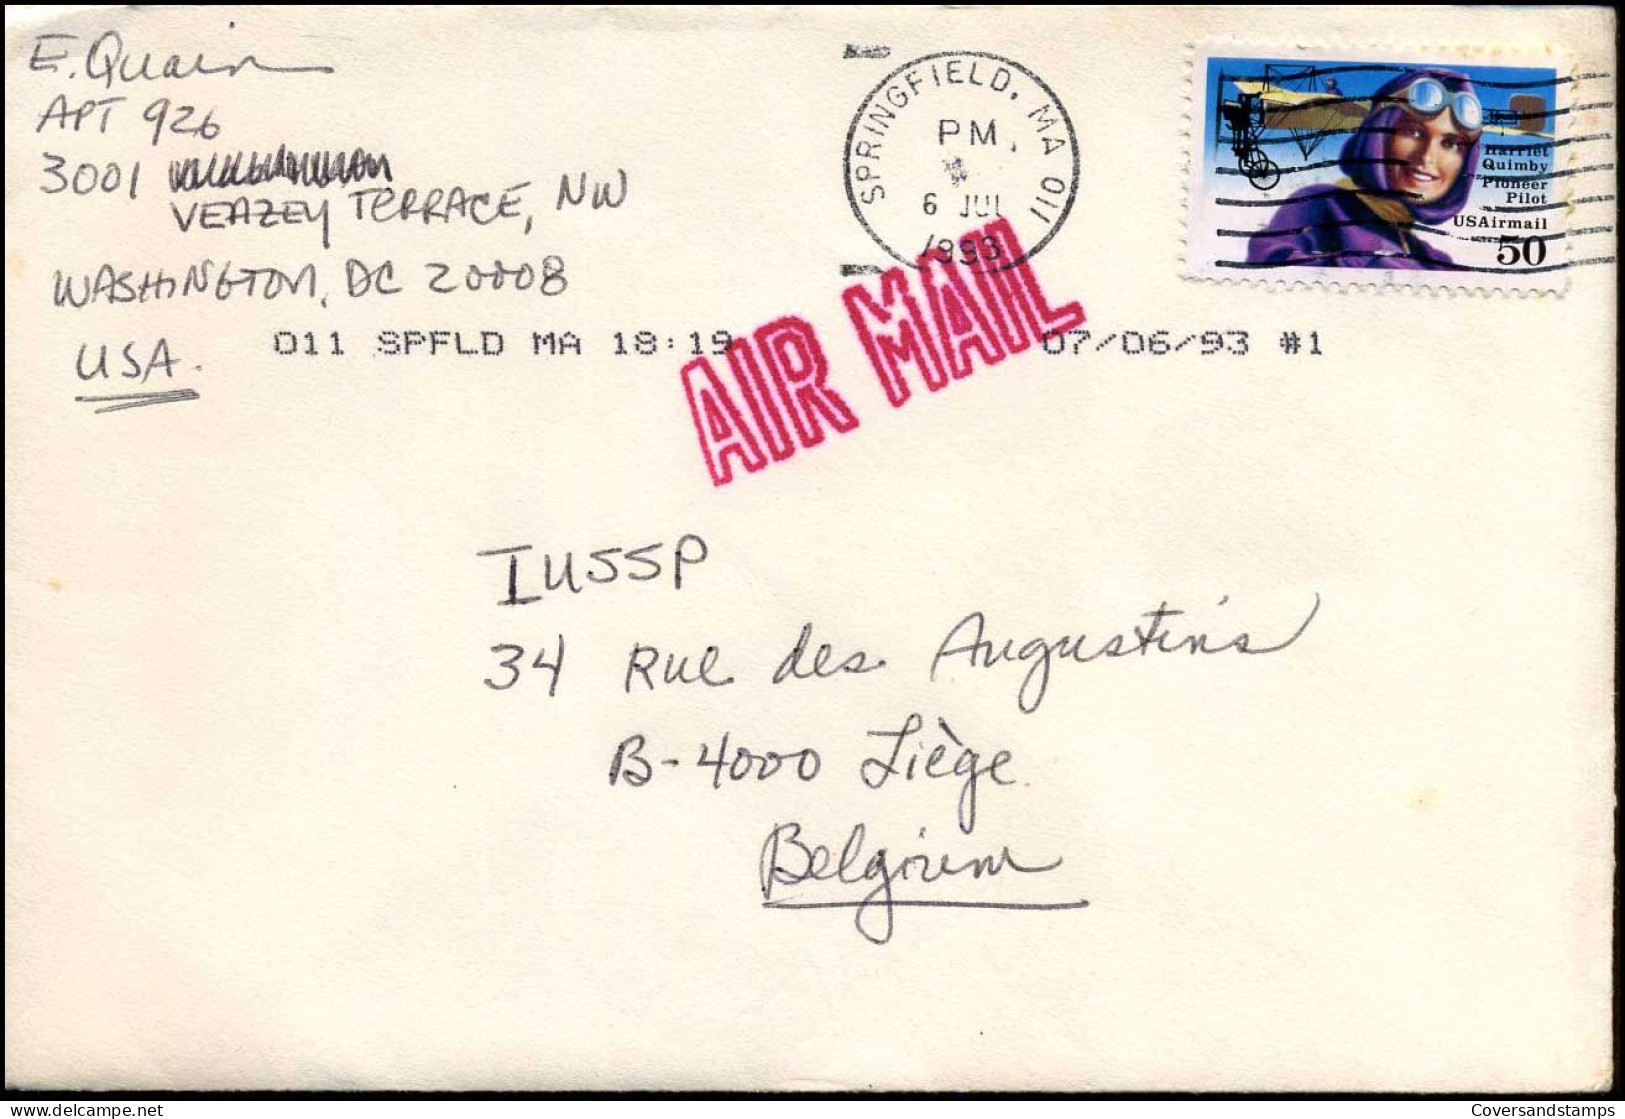 E. Quain
APT 926
3001
VEAZEY TERRACE, NW
WASHINGTON, DC 20008
USA.
SPRINGFIELD, MA 011
PM
6 JUL
1993
Harriet
Quimby
Pioneer
Pilot
USAirmail
50
011 SPFLD MA 18:19 07/06/93 #1
AIR MAIL
IUSSP
34 Rue des Augustins
B-4000 Liège
Belgium
Coversandstamps